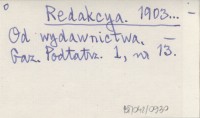 Redakcya. 1903...
Od wydawnictwa. —
Gaz. Podtatrz. 1, nr 13.